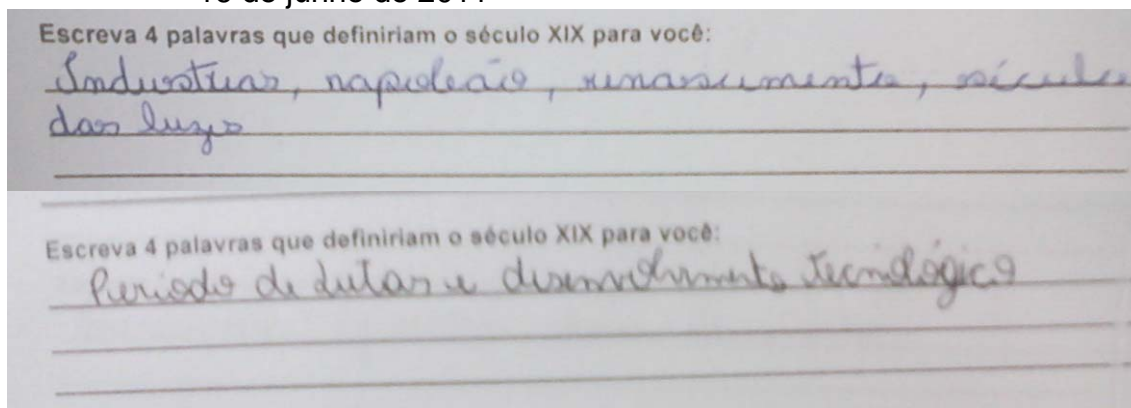 Escreva 4 palavras que definiriam o século XIX para você:
Industrias, napoleão, renascimento, século
das luzes
Escreva 4 palavras que definiriam o século XIX para você:
Periodo de lutas e desenvolvimento tecnológico